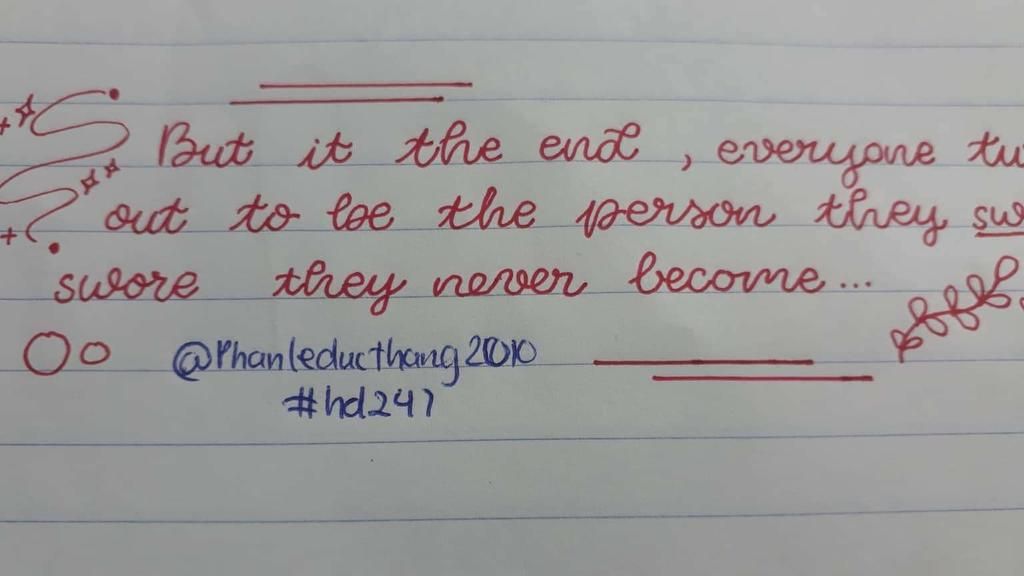 But it the end, everyone tu
out to be the person they sw
swore they never become...
@Phanleducthang2010
#hd247